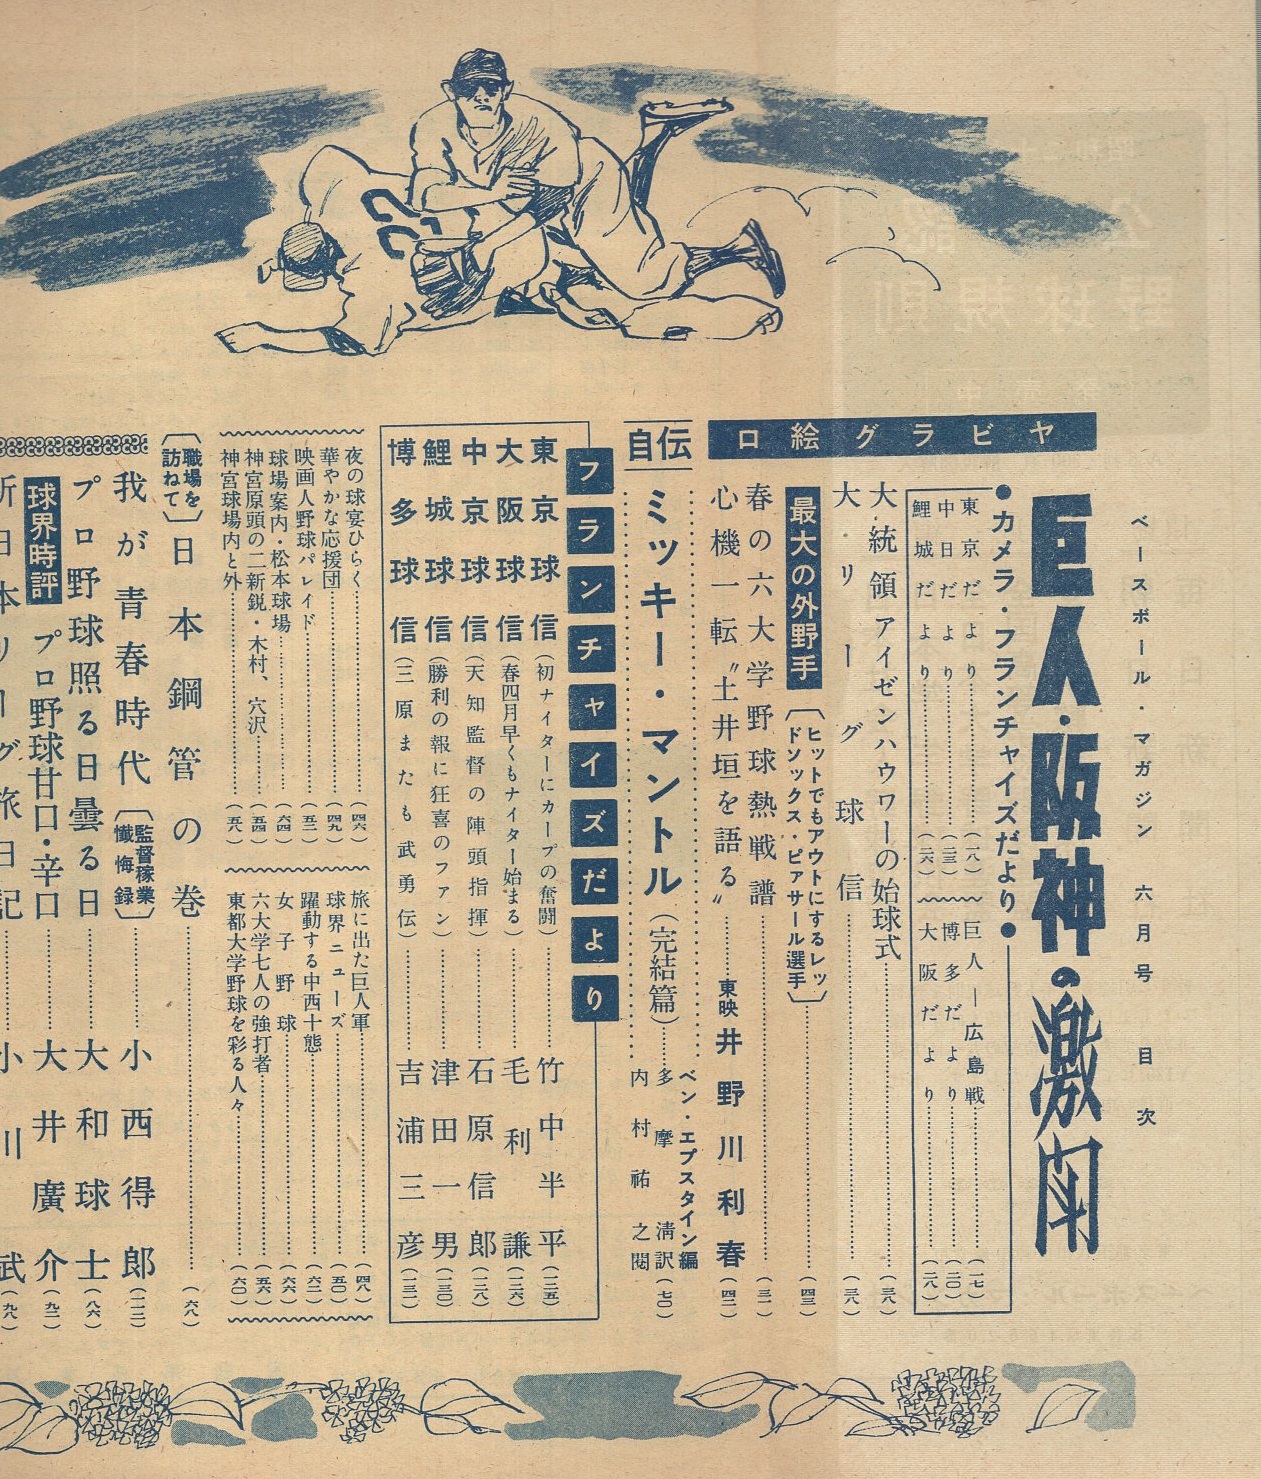 ベースボール・マガジン 六月号 目次
巨人・阪神の激闘
口絵グラビヤ
●カメラ・フランチャイズだより●
東京だより……(一八)
中日だより……(二三)
鯉城だより……(二六)
巨人—広島戦……(一七)
博多だより……(二〇)
大阪だより……(二八)
大統領アイゼンハウワーの始球式……(三八)
大リーグ球信……(三八)
最大の外野手
〔ヒットでもアウトにするレッドソックス・ピアサール選手〕……(四三)
春の六大学野球熱戦譜……(三一)
心機一転〝土井垣を語る〟……東映 井野川利春(四二)
自伝
ミッキー・マントル(完結篇)……
ベン・エプスタイン編
多摩清訳(七〇)
内村祐之閲
フランチャイズだより
東京球信(初ナイターにカープの奮闘)……竹中半平(一三五)
大阪球信(春四月早くもナイター始まる)……毛利謙(一三六)
中京球信(天知監督の陣頭指揮)……石原信郎(一三八)
鯉城球信(勝利の報に狂喜のファン)……津田一男(一三〇)
博多球信(三原またも武勇伝)……吉浦三彦(一三二)
夜の球宴ひらく……(四六)
華やかな応援団……(四九)
映画人野球パレイド……(五二)
球場案内・松本球場……(六四)
神宮原頭の二新鋭・木村、穴沢……(五四)
神宮球場内と外……(五八)
旅に出た巨人軍……(四八)
球界ニューズ……(五〇)
躍動する中西十態……(六二)
女子野球……(六六)
六大学七人の強打者……(五六)
東都大学野球を彩る人々……(六〇)
〔職場を訪ねて〕日本鋼管の巻……(六八)
我が青春時代〔監督稼業懺悔録〕……小西得郎(一一二)
プロ野球照る日曇る日……大和球士(八六)
球界時評
プロ野球甘口・辛口……大井廣介(九二)
新日本リーグ旅日記……小川武(九八)